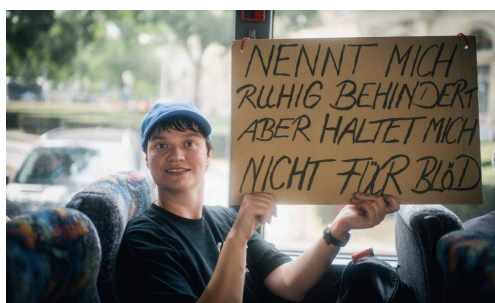 NENNT MICH
RUHIG BEHINDERT
ABER HALTET MICH
NICHT FÜR BLÖD